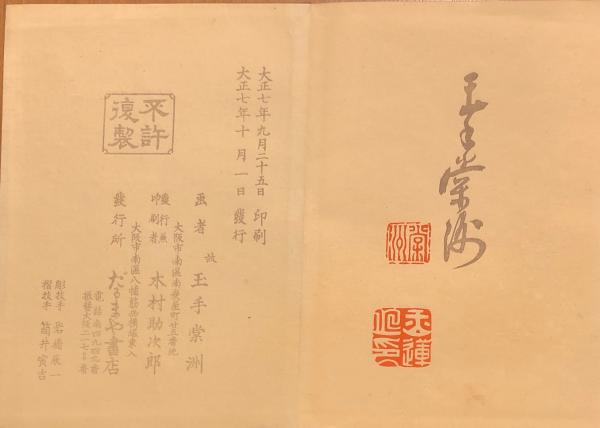 玉手棠洲
棠洲
大正七年九月二十五日印刷
大正七年十月一日發行
不許複製
画者 故 玉手棠洲
大阪市南區南炭屋町廿五番地
發行兼印刷者 木村助次郎
大阪市南區八幡筋西橫堀東入
發行所 だるまや書店
電話南四九四九番
彫技手 岩橋庄一
摺技手 筒井寅吉